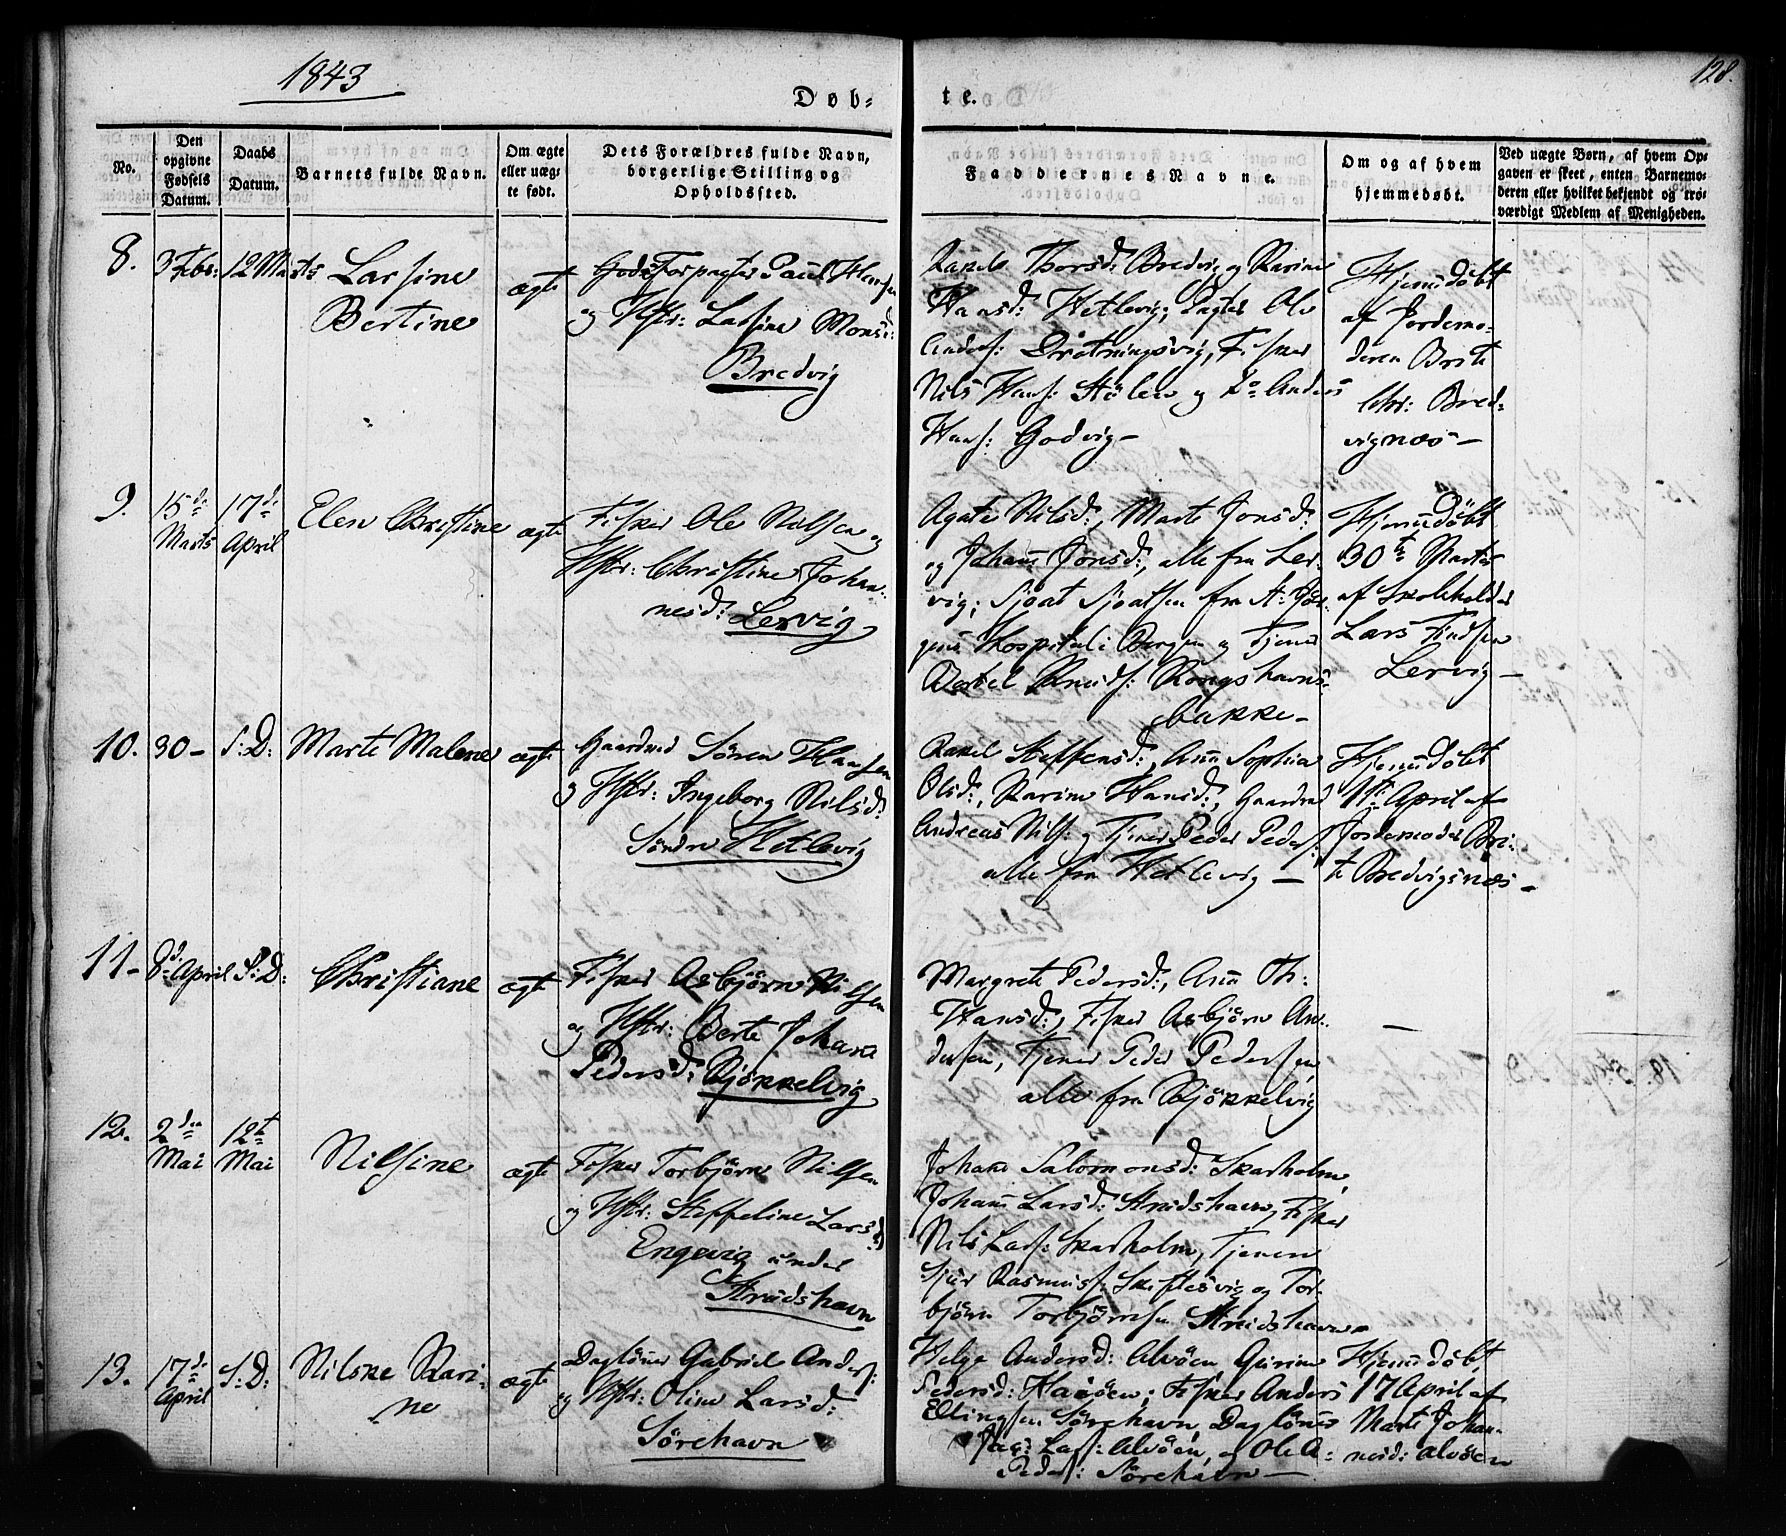 1843
128.
Døb-
te.
No.
Den opgivne Fødsels Datum.
Daabs Datum.
Barnets fulde Navn.
Om ægte eller uægte født.
Dets Forældres fulde Navn, borgerlige Stilling og Opholdssted.
Faddernes Navne.
Om og af hvem hjemmedøbt.
Ved uægte Børn, af hvem Opgaven er skeet, enten Barnemoderen eller hvilket bekjendt og troværdigt Medlem af Menigheden.
8.
3 Febr:
12 Marts
Larsine
Bertine
ægte
Godsforpagter Paul Hansen
og Hstr: Larsine Monsd:
Bredvig
Rakel Thorsd: Bredvig og Karine
Hansd: Hetlevig; Pagter Ole
Anders: Drotningsvig, Fisker
Nils Hans: Stölen og Do Anders
Hans: Godvig—
Hjemdöbt
af Jordemo-
deren Brite
Chr: Bred-
vignæs—
9.
15de
Marts
17de
April
Elen Christine
ægte
Fisker Ole Nilsen og
Hstr: Christine Johan-
nesd: Lervig
Agate Nilsd:, Marte Jonsd:
og Johan Jonsd:, alle fra Ler-
vig; Sjoat Sjoatsen fra St: Jör-
gens Hospital i Bergen og Tjener
Bertel Knuds: Kongshavns-
bakke—
Hjemdöbt
30te Marts
af Skoleholder
Lars Findsen
Lervig—
10.
30—
S: D:
Marte Malene
ægte
Gaardmd Sören Hansen
og Hstr: Ingeborg Nilsd:
Söndre Hetlevig
Rakel Steffensd:, Ann Sophia
Olsd:, Karine Hansd:, Gaardmd
Andreas Nils: og Tjener Peder Peders:
alle fra Hetlevig—
Hjemdöbt
1te April af
Jordemoder Bri-
te Bredvigsnæs—
11—
8de April
S: D:
Christiane
ægte
Fisker Asbjörn Nilsen
og Hstr: Berte Johane
Pedersd: Kjökkelvig
Margrete Pedersd:, Ann Th:
Hansd:, Fisker Asbjörn An-
dersen, Tjener Peder Pedersen,
alle fra Kjökkelvig
—
12.
2den
Mai
12te
Mai
Nilsine
ægte
Fisker Torbjörn Nilsen
og Hstr: Steffeline Larsd:
Engevig under
Strudshavn
Johane Salomonsd: Skarholm,
Johan Larsd: Strudshavn, Fisker
Nils Lars: Skarholm, Tjenere
Sjur Rasmus: Skiftesvig og Tor-
björn Torbjörnsen Strudshavn—
13.
17de
April
S: D:
Nilske Kari-
ne
ægte
Daglönner Gabriel Anders:
og Hstr: Oline Larsd:
Sörehavn
Helge Andersd: Alvöen, Gurine
Pedersd: Haaöen; Fisker Anders
Ellingsen Sörehavn, Daglönner
Lars: Alvöen, og Ole A:
Peders: Sörehavn—
Hjemdöbt
17 April af
Marte Johan-
nesd: Alvöen